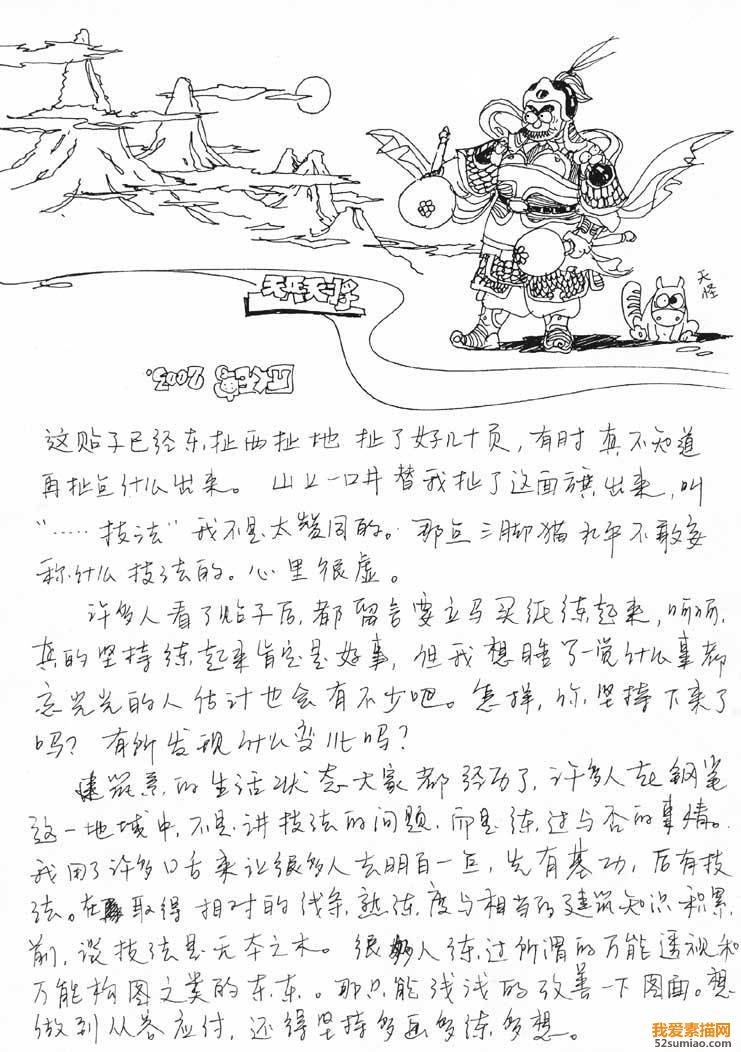 天兵天将
天怪
2003.
这贴子已经东扯西扯地扯了好几十页,有时真不知道
再扯点什么出来。山上一口井替我扯了这面旗出来,叫
“……技法”我不是太赞同的。那点三脚猫水平不敢妄
称什么技法的。心里很虚。
许多人看了贴子后,都留言要立马买纸练起来,呵呵,
真的坚持练起来肯定是好事,但我想睡了一觉什么事都
忘光光的人估计也会有不少吧。怎样,你坚持下来了
吗?有所发现什么变化吗?
建筑系的生活状态大家都经历了,许多人在钢笔
这一地域中,不是讲技法的问题,而是练过与否的事情。
我用了许多口舌来让很多人去明白一点,先有基功,后有技
法。在取得相对的线条熟练度与相当的建筑知识积累
前,谈技法是无本之木。很多人练过所谓的万能透视和
万能构图之类的东东。那只能浅浅的改善一下图面。想
做到从容应付,还得坚持多画多练多想。
我爱素描网
52sumiao.com